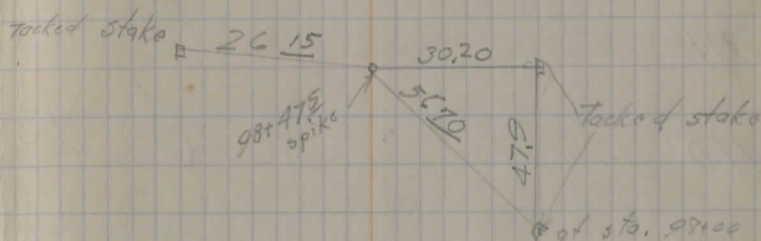 Tacked stake
26 15
30.20
98+47.5
spike
56 70
47.5
Tacked stake
at sta. 98+00